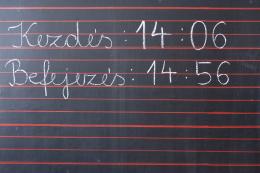 Kezdés : 14 : 06
Befejezés : 14 : 56